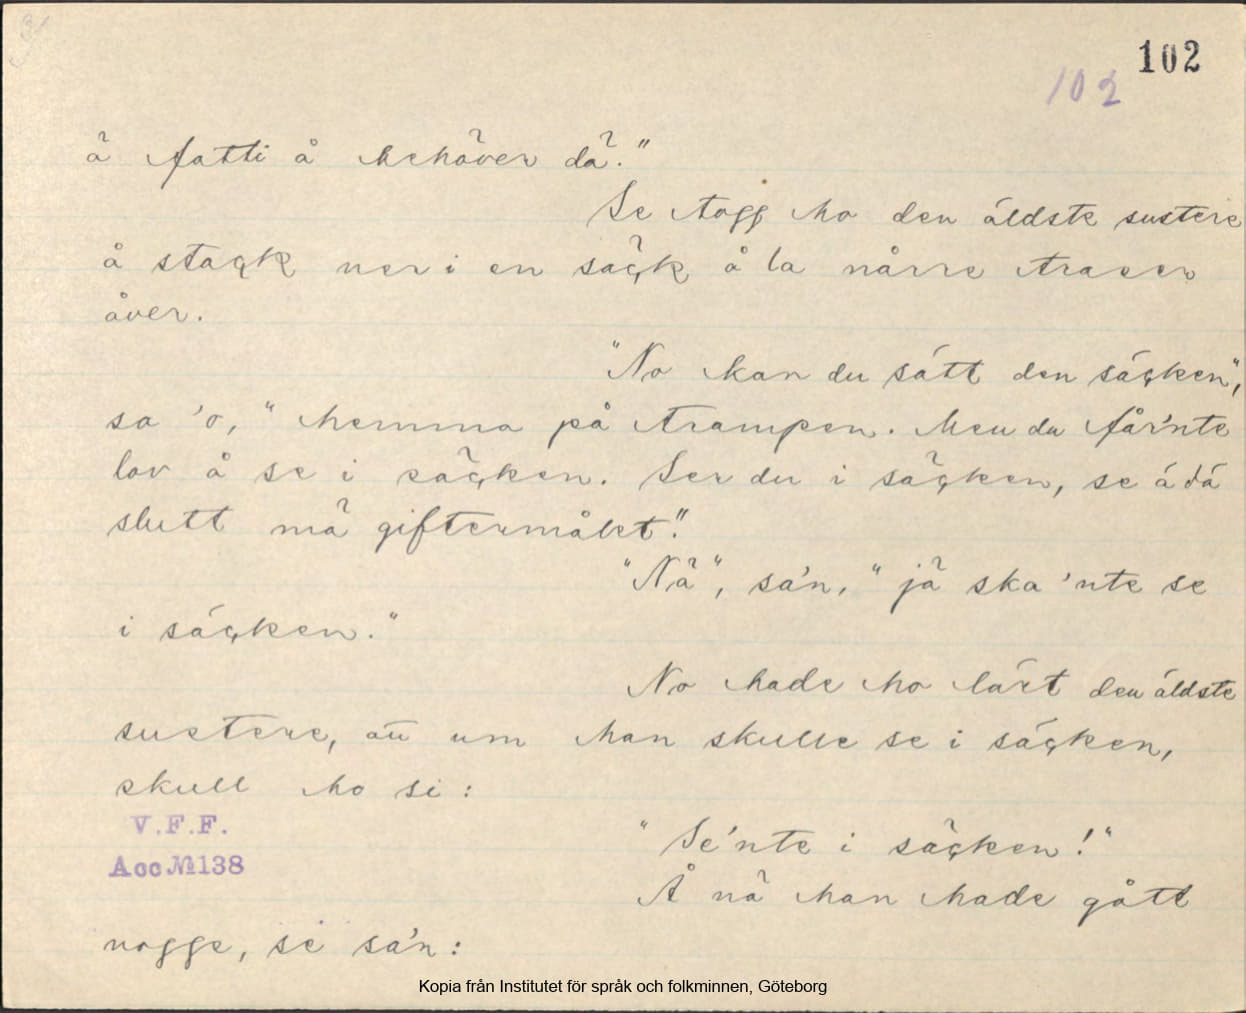 102
102
ä fatti å behöver dä."
Se togg ho den äldste sustere
å stackk ner i en säckk å la nårre traser
över.
"No kan du sätt den säcken",
sa 'o, "hemma på trampen. Men du får'nte
lov å se i säcken. Ser du i säcken, se ä dä
slutt mä giftermålet."
"Nä", sa'n, "jä ska 'nte se
i säcken."
No hade ho lärt den äldste
sustere, att um han skulle se i säcken,
skull ho si:
V.F.F.
Acc № 138
"Se'nte i säcken!"
Å nä han hade gått
nogge, se sa'n:
Kopia från Institutet för språk och folkminnen, Göteborg